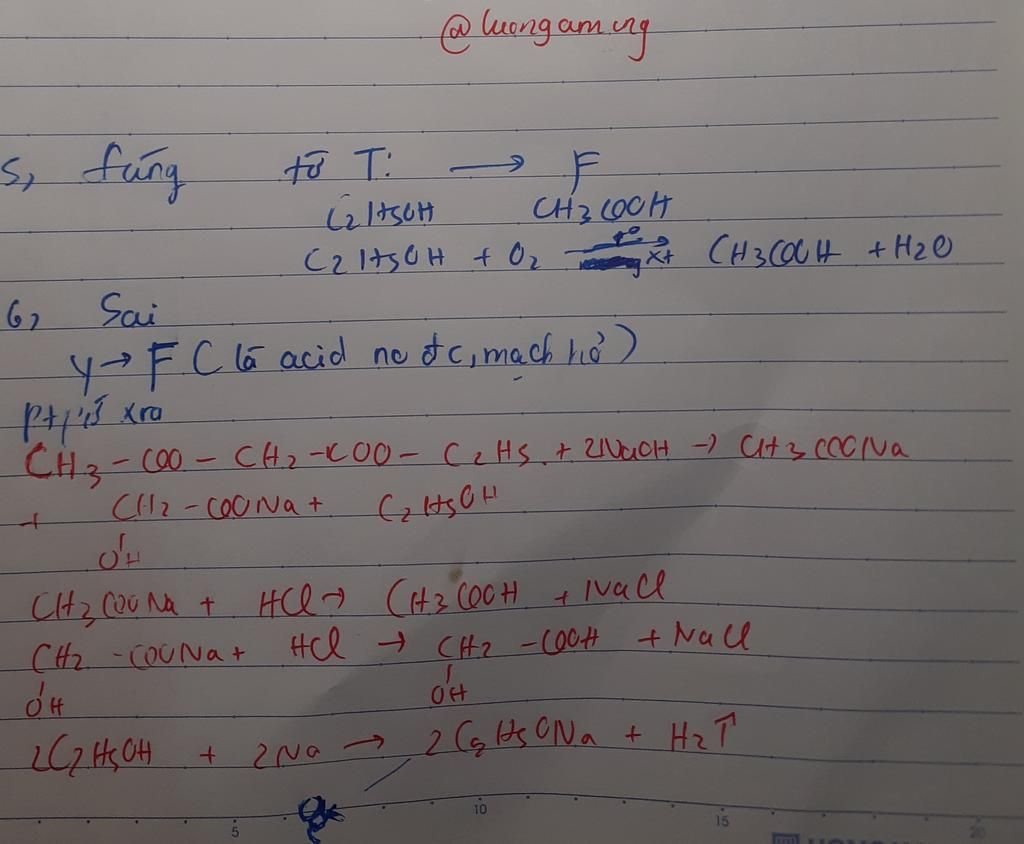 @luongamung
5, đúng từ T: → F
C2H5OH CH3COOH
C2H5OH + O2 t° xt CH3COOH + H2O
6, Sai
Y → F (là acid no đc, mạch hở)
xra
CH3 - COO - CH2 - COO - C2H5 + 2NaOH → CH3COONa
+ CH2 - COONa + C2H5OH
OH
CH3COONa + HCl → CH3COOH + NaCl
CH2 - COONa + HCl → CH2 - COOH + NaCl
OH OH
2C2H5OH + 2Na → 2C2H5ONa + H2↑
5 10 15 20